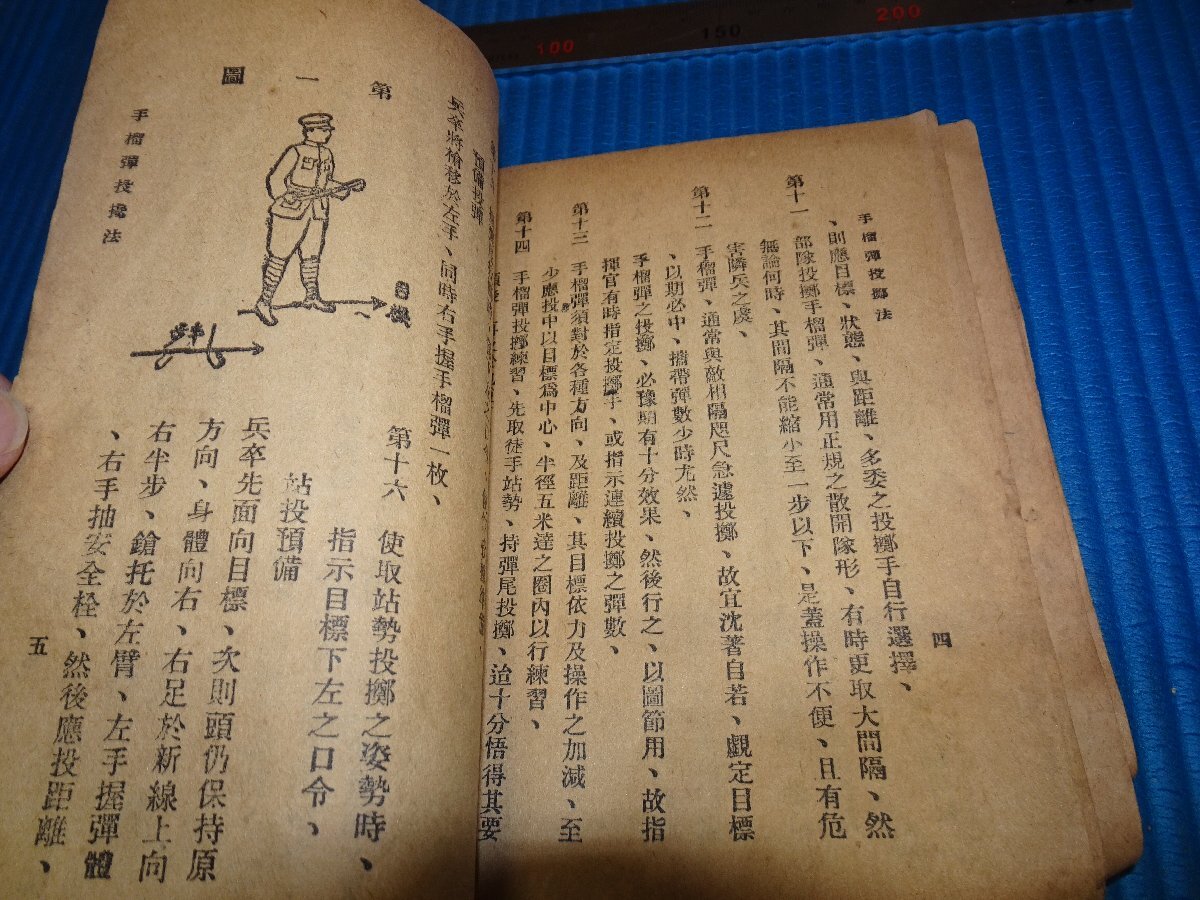 手榴彈投擲法
、則應目標、狀態、與距離、多委之投擲手自行選擇、
第十一 部隊投擲手榴彈、通常用正規之散開隊形、有時更取大間隔、然
無論何時、其間隔不能縮小至一步以下、是蓋操作不便、且有危
害隣兵之虞、
第十二 手榴彈、通常與敵相隔咫尺急遽投擲、故宜沈著自若、覷定目標
、以期必中、攜帶彈數少時尤然、
手榴彈之投擲、必豫期有十分效果、然後行之、以圖節用、故指
揮官有時指定投擲手、或指示連續投擲之彈數、
第十三 手榴彈須對於各種方向、及距離、其目標依力及操作之加減、至
少應投中以目標爲中心、半徑五米達之圈內以行練習、
第十四 手榴彈投擲練習、先取徒手站勢、持彈尾投擲、迨十分悟得其要
四
預備投彈
兵卒將槍卷於左手、同時右手握手榴彈一枚、
第一圖
目標
半步
第十六 使取站勢投擲之姿勢時、
指示目標下左之口令、
站投預備
兵卒先面向目標、次則頭仍保持原
方向、身體向右、右足於新線上向
右半步、鎗托於左臂、左手握彈體
、右手抽安全栓、然後應投距離、
手榴彈投擲法
五
100
150
200